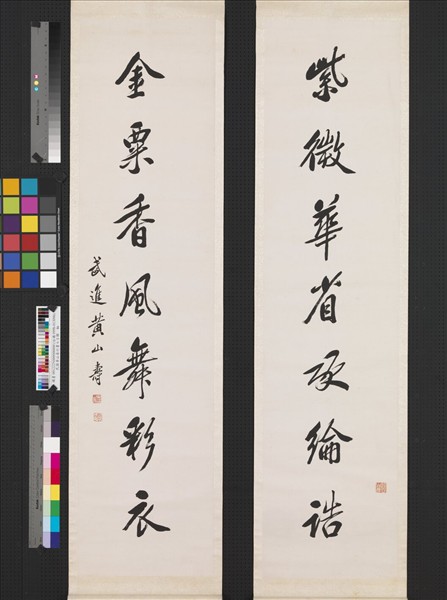 紫微華省承綸誥
金粟香風舞彩衣
武進黃山壽